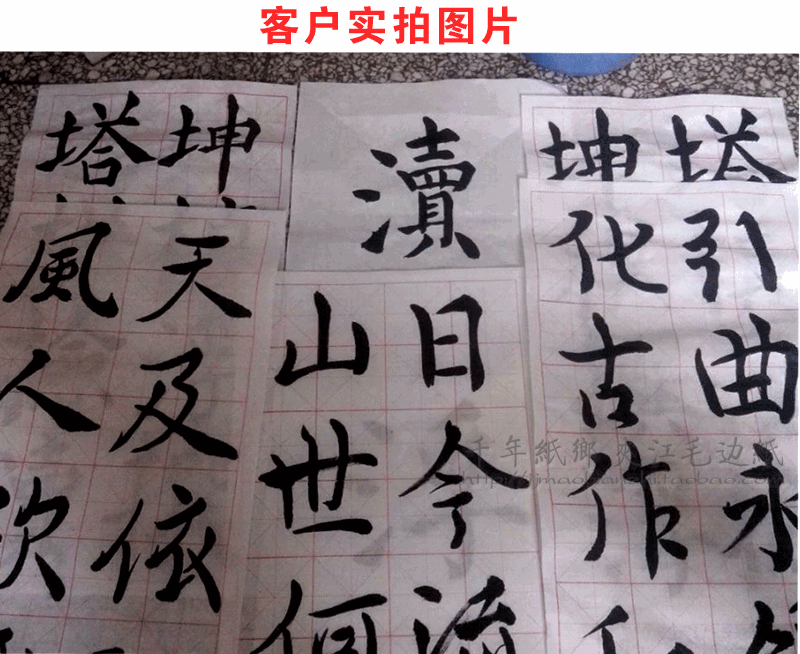 客户实拍图片
塔坤
瀆
坤塔
風天
人及
次依
山日
世今
何流
化引
古曲
作永
千年紙鄉 夾江毛边紙